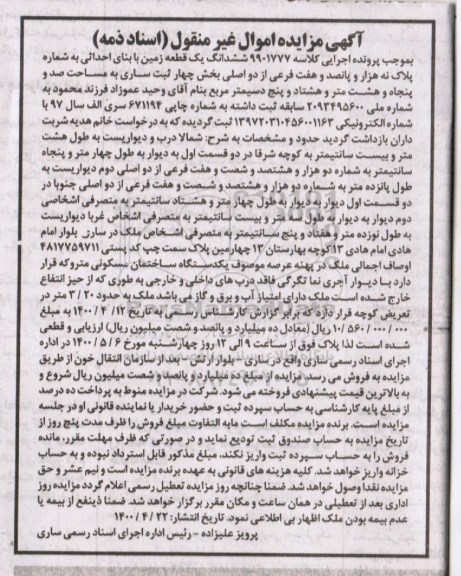 آگهی مزایده اموال غیر منقول (اسناد ذمه)
بموجب پرونده اجرایی کلاسه ۹۹۰۱۷۷۷ ششدانگ یک قطعه زمین با بنای احداثی به شماره
پلاک نه هزار و پانصد و هفت فرعی از دو اصلی بخش چهار ثبت ساری به مساحت صد و
پنجاه و هشت متر و هشتاد و پنج دسیمتر مربع بنام آقای وحید عموزاد فرزند محمود به
شماره ملی ۲۰۹۳۴۹۵۶۰۰ سابقه ثبت داشته به شماره چاپی ۶۷۱۱۹۴ سری الف سال ۹۷ با
شماره الکترونیکی ۱۳۹۷۲۰۳۱۰۴۵۶۰۰۱۱۶۳ ثبت گردیده که به درخواست خانم هدیه شربت
داران بازداشت گردید حدود و مشخصات به شرح: شمالا درب و دیواریست به طول هشت
متر و بیست سانتیمتر به کوچه شرقا در دو قسمت اول به دیوار به طول چهار متر و پنجاه
سانتیمتر به شماره دو هزار و هشتصد و شصت و هفت فرعی از دو اصلی دوم دیواریست به
طول پانزده متر به شماره دو هزار و هشتصد و شصت و هفت فرعی از دو اصلی جنوبا در
دو قسمت اول دیوار به دیوار به طول چهار متر و هشتاد سانتیمتر به متصرفی اشخاصی
دوم دیوار به دیوار به طول سه متر و بیست سانتیمتر به متصرفی اشخاص غربا دیواریست
به طول نوزده متر و هفتاد و پنج سانتیمتر به متصرفی اشخاص ملک در ساری بلوار امام
هادی امام هادی ۱۳ کوچه بهارستان ۱۳ چهارمین پلاک سمت چپ کد پستی ۴۸۱۷۷۵۹۷۱۱
اوصاف اجمالی ملک در پهنه عرصه موصوف یکدستگاه ساختمان مسکونی مترو که قرار
دارد با دیوار آجری نما تگرگی فاقد درب های داخلی و خارجی به طوری که از حیز انتفاع
خارج شده است ملک دارای امتیاز آب و برق و گاز می باشد ملک به حدود ۳/۲۰ متر در
تعریض کوچه قرار دارد که برابر گزارش کارشناس رسمی به تاریخ ۱۴۰۰/۴/۱۲ به مبلغ
۱۰/۵۶۰/۰۰۰/۰۰۰ ریال (معادل ده میلیارد و پانصد و شصت میلیون ریال) ارزیابی و قطعی
شده است لذا پلاک فوق از ساعت ۹ الی ۱۲ روز چهارشنبه مورخ ۱۴۰۰/۵/۶ در اداره
اجرای اسناد رسمی ساری واقع در ساری - بلوار ارتش - بعد از سازمان انتقال خون از طریق
مزایده به فروش می رسد. مزایده از مبلغ ده میلیارد و پانصد و شصت میلیون ریال شروع و
به بالاترین قیمت پیشنهادی فروخته می شود. شرکت در مزایده منوط به پرداخت ده درصد
از مبلغ پایه کارشناسی به حساب سپرده ثبت و حضور خریدار یا نماینده قانونی او در جلسه
مزایده است. برنده مزایده مکلف است مابه التفاوت مبلغ فروش را ظرف مدت پنج روز از
تاریخ مزایده به حساب صندوق ثبت تودیع نماید و در صورتی که ظرف مهلت مقرر، مانده
فروش را به حساب سپرده ثبت واریز نکند، مبلغ مذکور قابل استرداد نبوده و به حساب
خزانه واریز خواهد شد. کلیه هزینه های قانونی به عهده برنده مزایده است و نیم عشر و حق
مزایده نقدا وصول خواهد شد. ضمنا چنانچه روز مزایده تعطیل رسمی اعلام گردد مزایده روز
اداری بعد از تعطیلی در همان ساعت و مکان مقرر برگزار خواهد شد. ضمنا ذینفع از بیمه یا
عدم بیمه بودن ملک اظهار بی اطلاعی نمود. تاریخ انتشار: ۱۴۰۰/۴/۲۲
پرویز علیزاده - رئیس اداره اجرای اسناد رسمی ساری